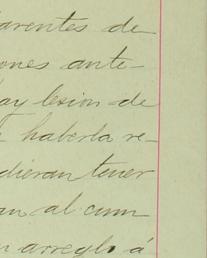 arentes de
ones ante-
ay lesion de
haberla re-
dieran tener
an al cum
arreglo á